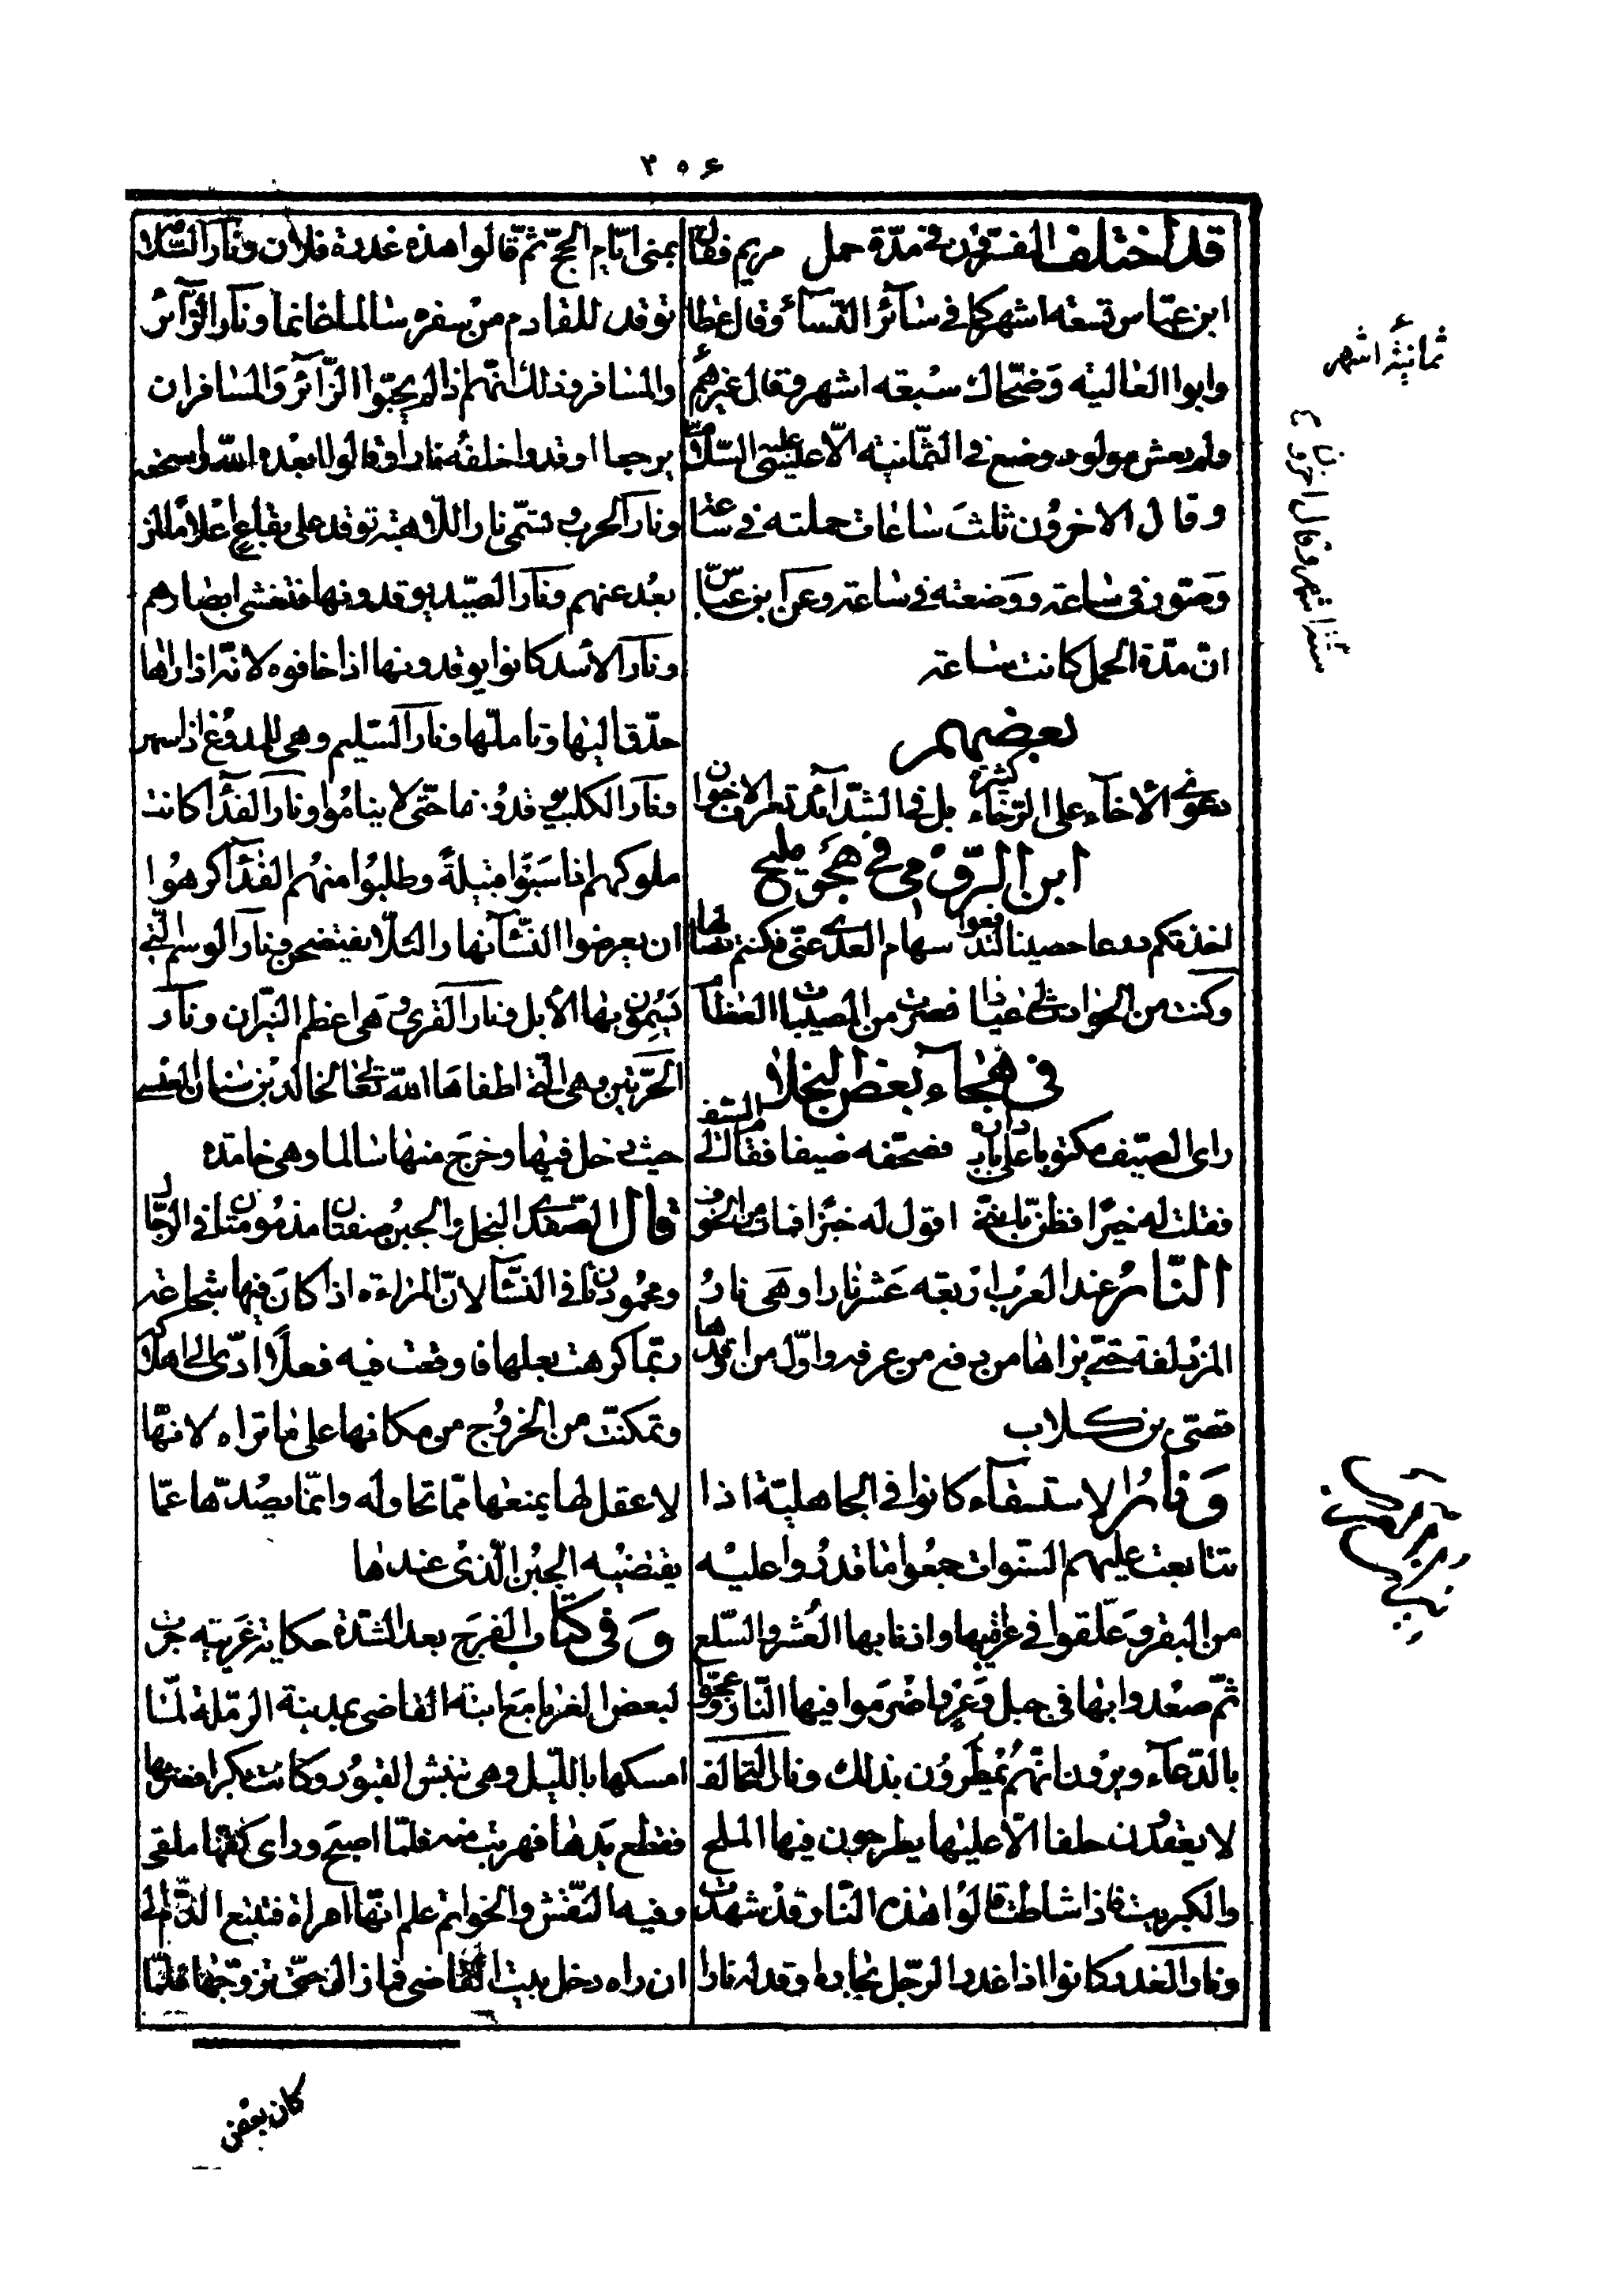 ۲۵۶
قد اختلف المفسّرون فى مدّة حمل مريم فقال
ابن عبّاس تسعة اشهر كما فى سآئر النّسآء وقال عطا
وابوا العالية وضحّاك سبعة اشهر وقال غيرهم
ثمانية اشهر
ولم يعش مولود وضع فى الثّمانية الّا عيسى عليه السّلام
وقال اخرون ستة اشهر
وقال الاخرون ثلث ساعات حملته فى ساعة
وصوّر فى ساعة ووضعته فى ساعة وعن ابن عبّاس
انّ مدّة الحمل كانت ساعة
بعضهم
دعوى الأخآء على الرّخاء كثيرة بل فى الشّدآئد تعرف الاخوان
ابن الرّومى فى هجو مليح
اخذتكم درعا حصينا لتدفعوا سهام العدى عنّى فكنتم نصالها
وكنت من الحوادث لى عياذا فصرت من المصيبات العظام
فى هجاء بعض البخلا
راى الصّيف مكتوبا على باب داره فصحّفه ضيفا فقام الى السّيف
فقلت له خيرًا فظنّ باننى اقول له خبزًا فمات من الخوف
النّار عند العرب اربعة عشر نارا وهى نار
المزدلفة حتّى يراها من دفع من عرفه واوّل من اوقدها
قصىّ بن كلاب
ونار الاستسقاء كانوا فى الجاهليّة اذا
تتابعت عليهم السّنوات جمعوا ما قدروا عليه
من البقر وعلّقوا فى عراقيبها واذنابها العُشر والسّلع
ثمّ صعدوا بها فى جبل وعر واضرموا فيها النّار وعجّوا
بالدّعآء ويرون انّهم يُمطَرون بذلك ونار التّحالف
لا يعقدون حلفا الّا عليها يطرحون فيها الملح
والكبريت فاذا شاطت قالوا هذه النّار قد شهدت
ونار الغدر كانوا اذا غدر الرّجل بجاره اوقد له نارا
بمنى ايّام الحجّ ثمّ قالوا هذه غدرة فلان ونار السّلامة
توقد للقادم من سفره سالما غانما ونار الزّآئر
والمسافر وذلك انّهم اذا لم يحبّوا الزّآئر والمسافر ان
يرجعا اوقدوا خلفه نارا وقالوا ابعده اللّه واسحقه
ونار الحرب وتسمّى نار الاهبة توقد على يفاع اعلامًا لمن
بعُد عنهم ونار الصّيد يوقدونها فتغشى ابصارهم
ونار الاسد كانوا يوقدونها اذا خافوه لانّه اذا راها
حدّق اليها وتاملها ونار السّليم وهى للملدوغ اذا سهر
ونار الكلب يوقدونها حتّى لا يناموا ونار الفدآ كانت
ملوكهم اذا سَبَوا قبيلةً وطلبوا منهم الفدآ كرهوا
ان يعرضوا النّسآ نهارا لئلّا يفتضحن ونار الوسم الّتى
يَسِمُون بها الأبل ونار القرى وهى اعظم النّيران ونار
الحرّتين وهى الّتى اطفاها اللّه تعالى لخالد بن سنان العبسى
حيث دخل فيها وخرج منها سالما وهى خامدة
قال الصّفدى البخل والجبن صفتان مذمومتان فى الرّجال
ومحمودتان فى النّسآ لانّ المراءة اذا كان فيها شجاعة
ربّما كرهت بعلها فاوقعت فيه فعلًا ادّى الى اهلاكه
وتمكّنت من الخروج من مكانها على ما تراه لانّها
لا عقل لها يمنعها ممّا تحاوله وانّما يصدّها عمّا
يقتضيه الجبُن الّذى عندها
وفى كتاب الفرج بعد الشّدّة حكاية غريبة جرت
لبعض الغربا مع ابنة القاضى بمدينة الرّملة لمّا
امسكها باللّيل وهى تنبش القبور وكانت بكرا فضربها
فقطع يدها فهربت منه فلمّا اصبح وراى كفّها ملقى
وفيه النّقش والخواتم علم انّها امراة فتتبع الدّم الى
ان راه دخل بيت القاضى فما زال حتّى تزوّجها فلمّا
كان بعض